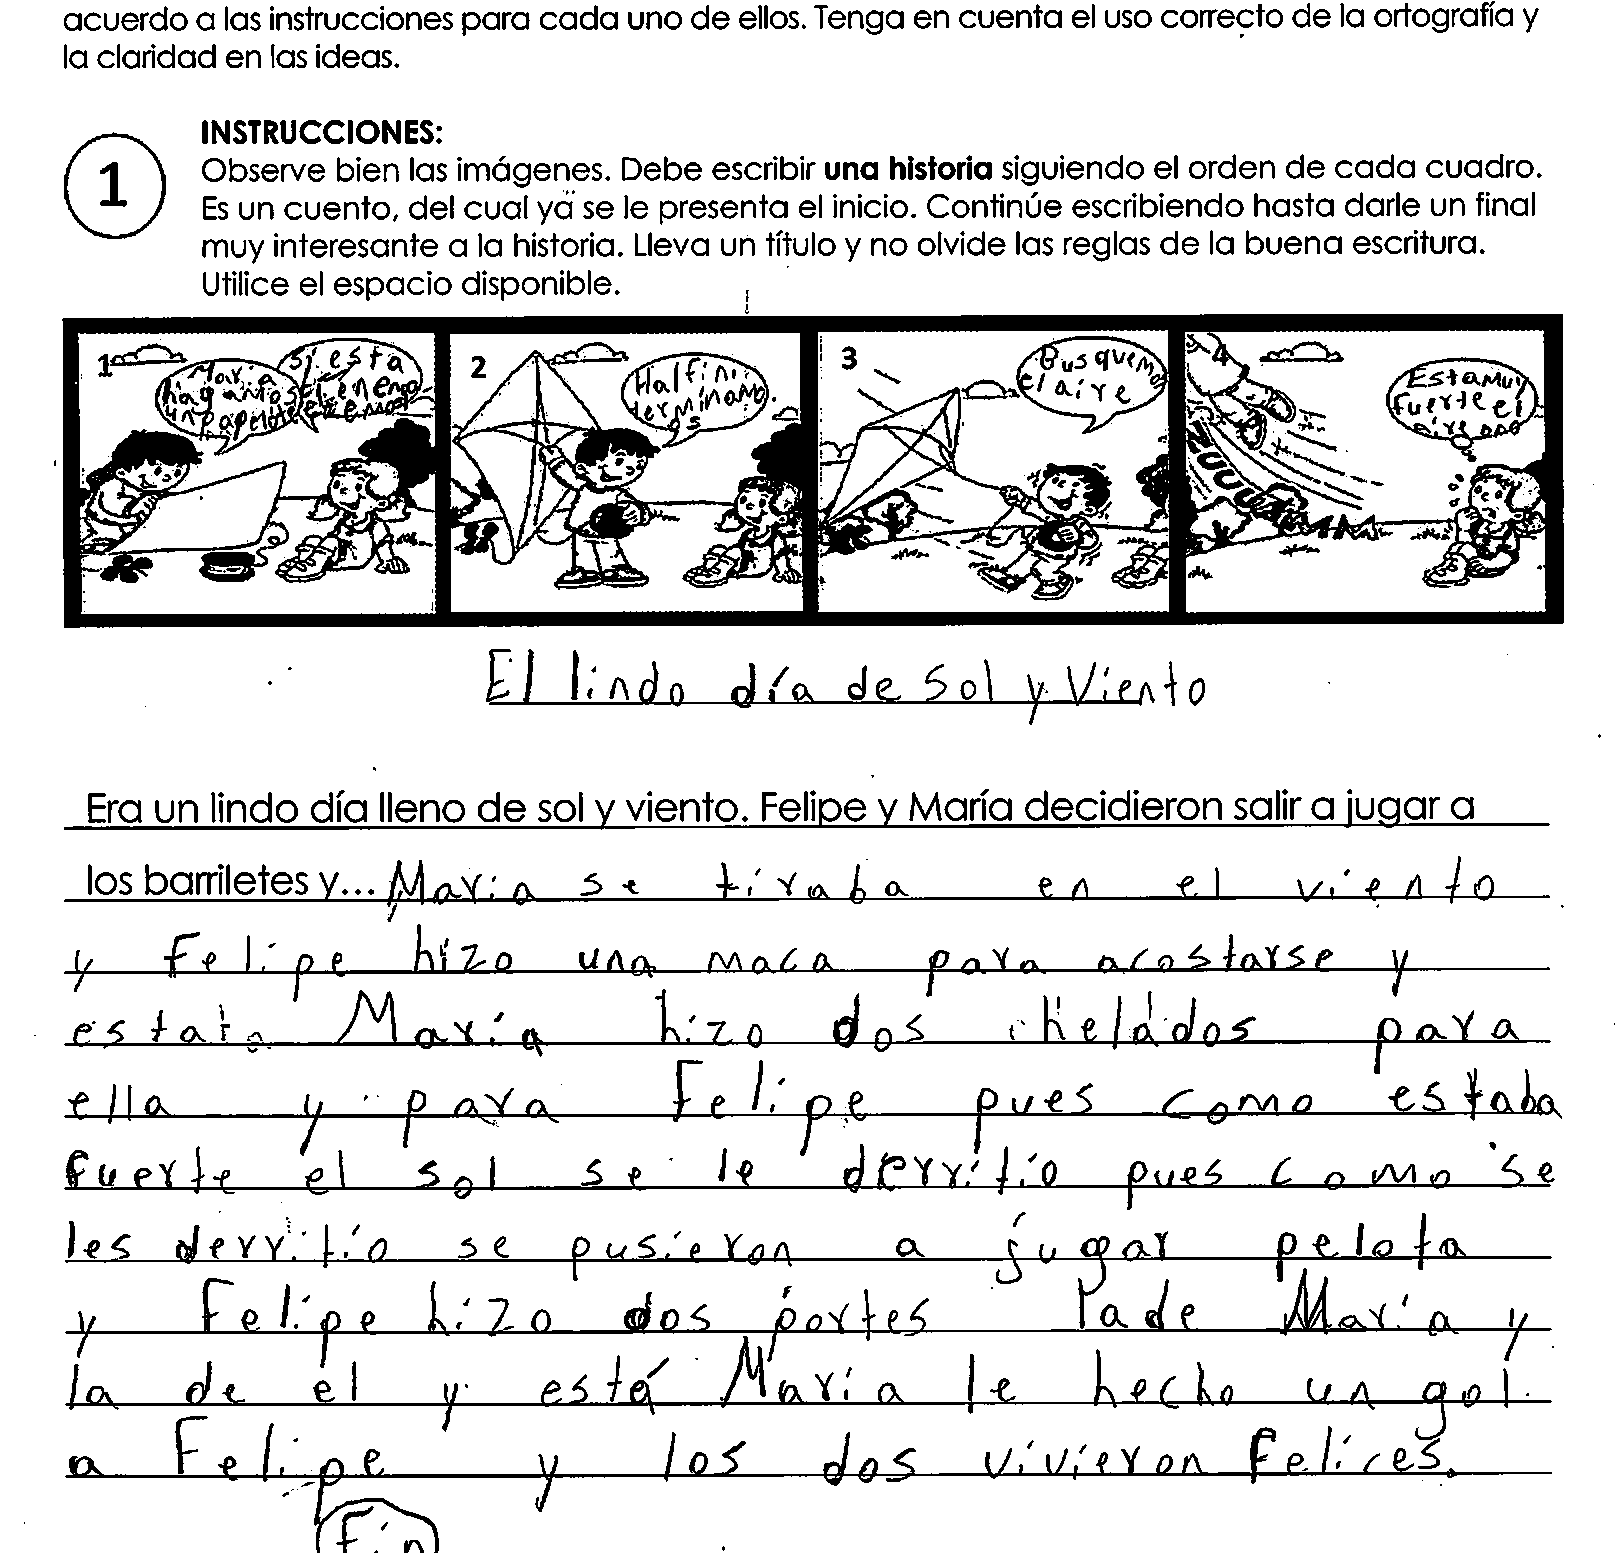 acuerdo a las instrucciones para cada uno de ellos. Tenga en cuenta el uso correcto de la ortografía y
la claridad en las ideas.
1
INSTRUCCIONES:
Observe bien las imágenes. Debe escribir una historia siguiendo el orden de cada cuadro.
Es un cuento, del cual ya se le presenta el inicio. Continúe escribiendo hasta darle un final
muy interesante a la historia. Lleva un título y no olvide las reglas de la buena escritura.
Utilice el espacio disponible.
1
María
hagamos
un papelote
si esta
2
Halfin
terminamos
3
Busquemo
el aire
4
Esta muy
fuerte el
aire
ZUUUUMMM
El lindo día de Sol y Viento
Era un lindo día lleno de sol y viento. Felipe y María decidieron salir a jugar a
los barriletes y... María se tiraba en el viento
y Felipe hizo una maca para acostarse y
María hizo dos helados para
ella y para Felipe pues como estaba
fuerte el sol se le derritio pues como se
les derritio se pusieron a jugar pelota
y Felipe hizo dos portes la de María y
la de el y está María le hecho un gol
a Felipe y los dos vivieron felices.
Fin